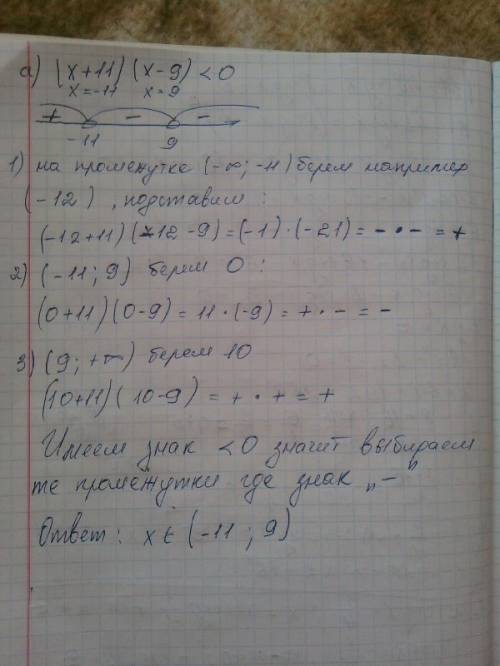 а) (x+11)(x-9) <0
x=-11 x=9
+ - -
-11 9
1) на промежутке (-∞; -11) берем например
(-12) , подставим :
(-12+11)(-12-9)=(-1)·(-21)= -·- = +
2) (-11; 9) берем 0 :
(0+11)(0-9)= 11·(-9)= +·- = -
3) (9; +∞) берем 10
(10+11)(10-9) = +·+ = +
Имеем знак <0 значит выбираем
те промежутки где знак „-"
Ответ: x ∈ (-11 ; 9)